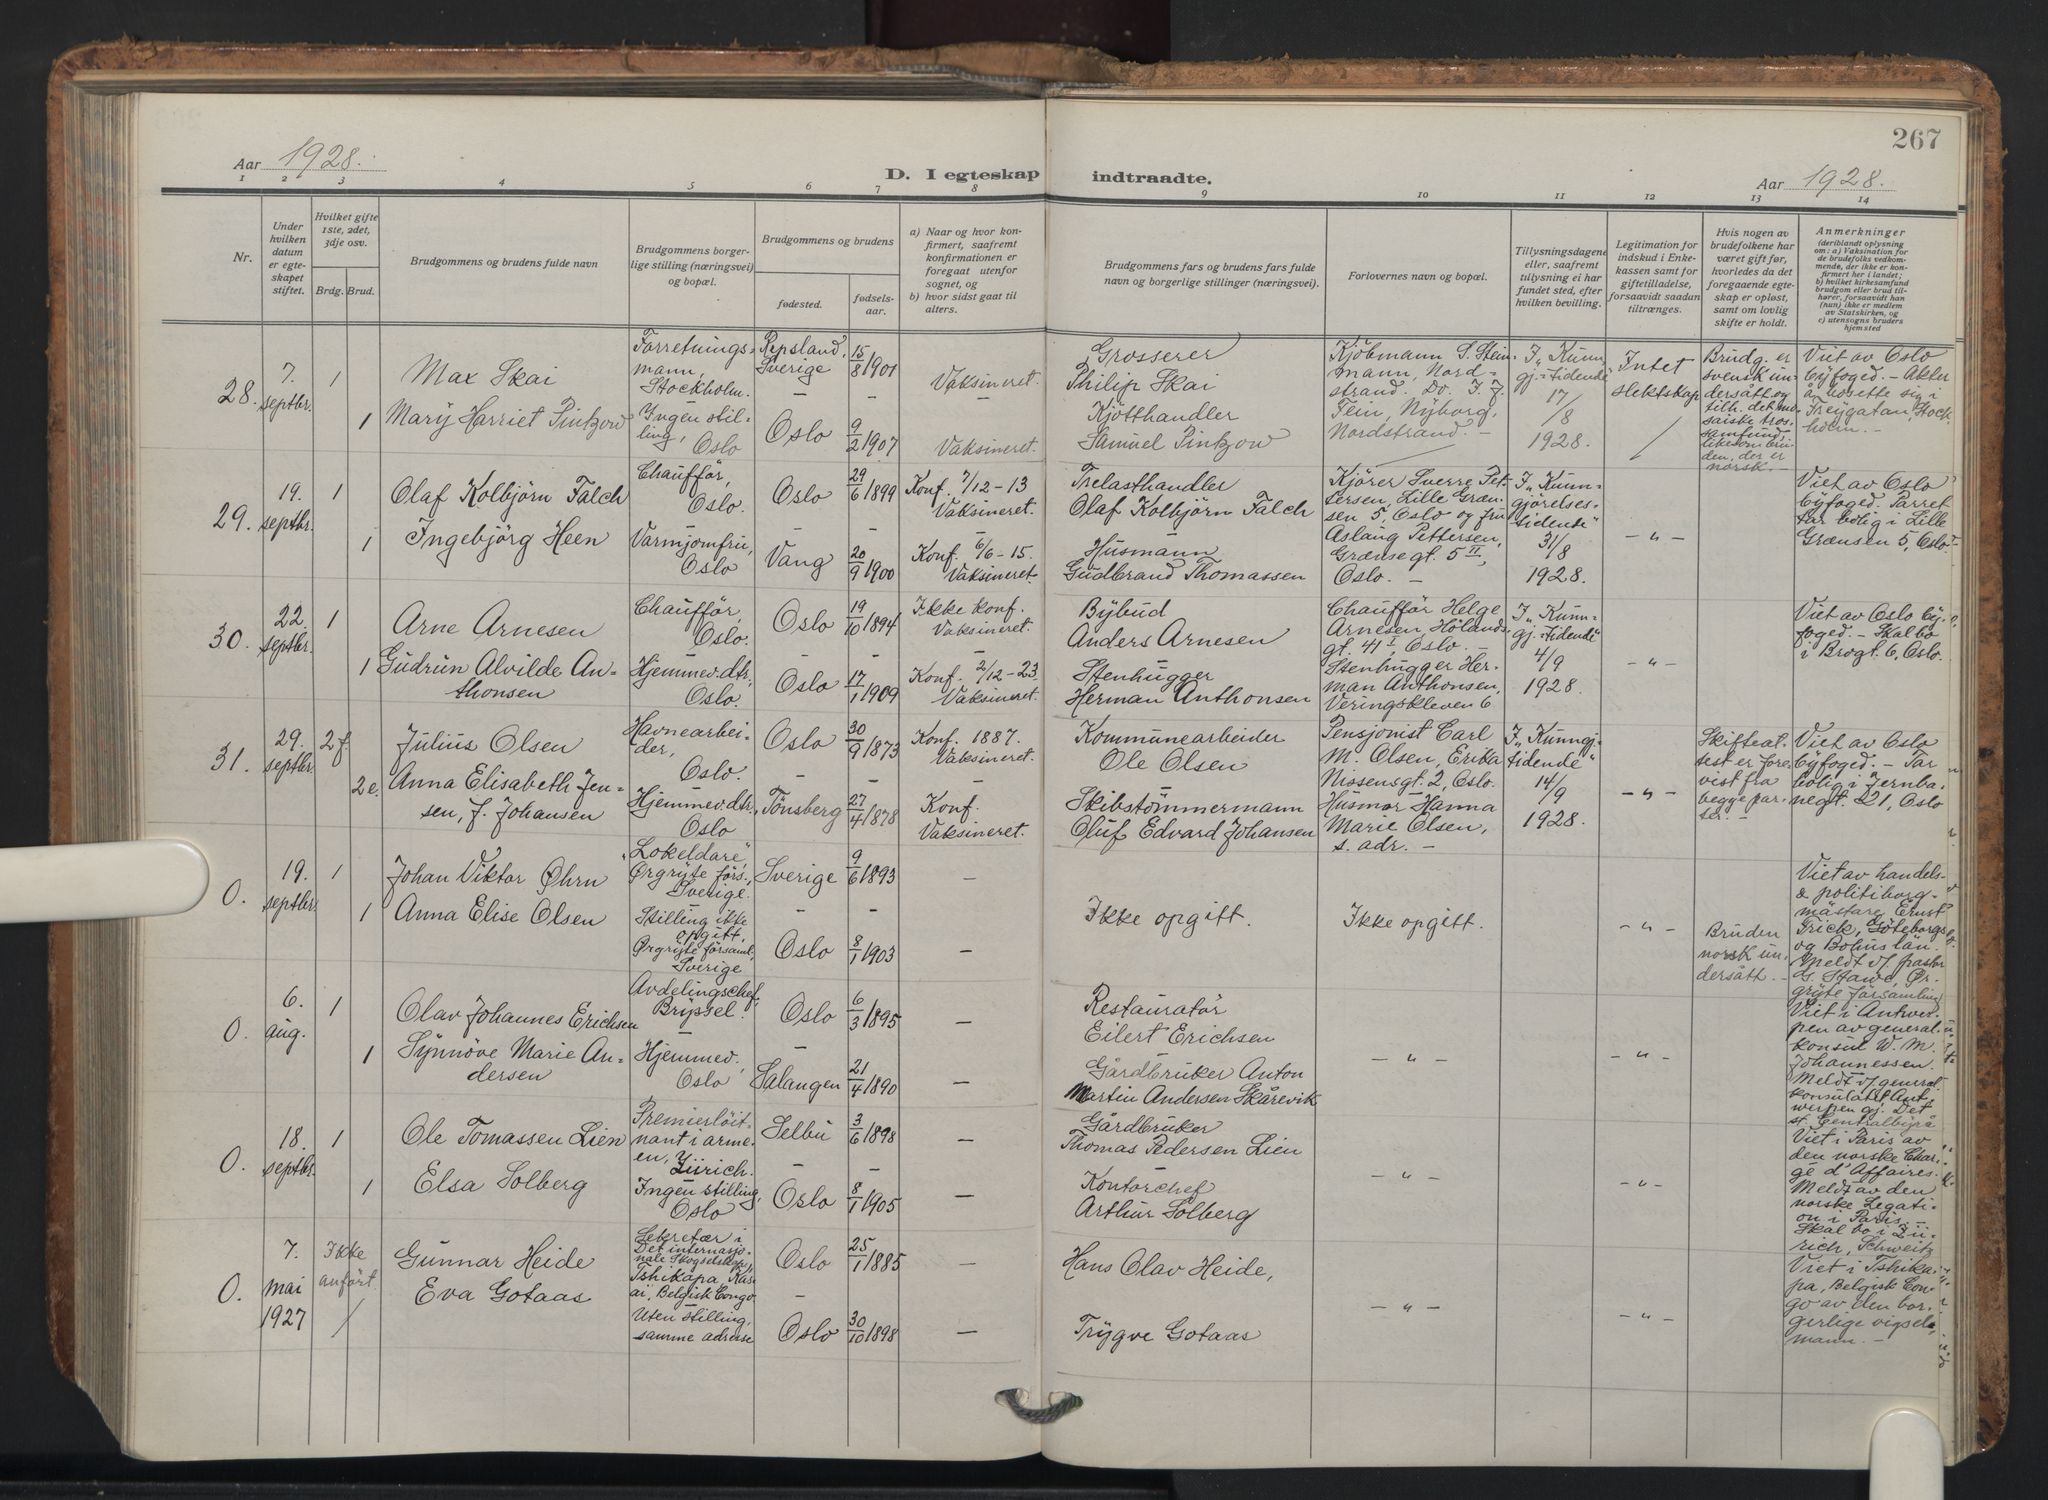 267
Aar 1928.
D. I egteskap indtraadte.
Aar 1928.
1 2 3 4 5 6 7 8 9 10 11 12 13 14
Nr.
Under hvilken datum er egteskapet stiftet.
Hvilket gifte 1ste, 2det, 3dje osv.
Brdg. Brud.
Brudgommens og brudens fulde navn
Brudgommens borgerlige stilling (næringsvei) og bopæl.
Brudgommens og brudens
fødested.
fødselsaar.
a) Naar og hvor konfirmert, saafremt konfirmationen er foregaat utenfor sognet, og
b) hvor sidst gaat til alters.
Brudgommens fars og brudens fars fulde navn og borgerlige stillinger (næringsvei).
Forlovernes navn og bopæl.
Tillysningsdagene eller, saafremt tillysning ei har fundet sted, efter hvilken bevilling.
Legitimation for indskud i Enkekassen samt for giftetilladelse, forsaavidt saadan tiltrænges.
Hvis nogen av brudefolkene har været gift før, hvorledes da det foregaaende egteskap er opløst, samt om lovlig skifte er holdt.
Anmerkninger
(deriblandt oplysning om: a) Vaksination for de brudefolks vedkommende, der ikke er konfirmert her i landet;
b) hvilket kirkesamfund brudgom eller brud tilhører, forsaavidt han (hun) ikke er medlem av Statskirken, og
c) utensogns bruders hjemsted
28.
7. septbr.
1
Max Skai
Forretningsmann, Stockholm.
Sverige
15/8 1901
Vaksineret.
1
Mary Harriet Pintzow
Ingen stilling, Oslo
Oslo
9/2 1907
Vaksineret.
Grosserer
Philip Skai
Kjötthandler
Samuel Pintzow
Kjöbmann S. Steinmann, Nordstrand. Do. I. J. Fein, Nyborg, Nordstrand. -
I „Kunngj.-tidende"
17/8
1928.
Intet slektskap
Brudg. er svensk undersått og tilh. det mosaiske trossamfund, likesom bruden, der er norsk. -
Viet av Oslo byfoged. - Akter å bosette sig i Freygatan, Stockholm. -
29.
19. septbr.
1
Olaf Kolbjörn Falch
Chauffør, Oslo.
Oslo
29/6 1899
Konf. 7/12 - 13
Vaksineret.
1
Ingebjörg Heen
Varmjomfru, Oslo
Vang
20/9 1900
Konf. 6/6 - 15.
Vaksineret.
Trelasthandler
Olaf Kolbjörn Falch
Husmann
Gudbrand Thomassen
Kjörer Sverre Pettersen, Lille Grænsen 5, Oslo og fru Aslaug Pettersen, Grænsegt. 5 II, Oslo. -
I „Kunngjørelsestidende"
31/8
1928.
- " -
Viet av Oslo byfoged. Parret tar bolig i Lille Grænsen 5, Oslo -
30.
22. septbr.
1
Arne Arnesen
Chauffør, Oslo.
Oslo
19/10 1894
Ikke konf.
Vaksineret.
1
Gudrun Alvilde Anthonsen
Hjemmev. dtr, Oslo.
Oslo
17/1 1909
Konf. 2/12 - 23.
Vaksineret.
Bybud
Anders Arnesen
Stenhugger
Herman Anthonsen
Chauffør Helge Arnesen, Hölandsgt. 41 I, Oslo. -
Stenhugger Herman Anthonsen, Veringskleven 6
I „Kunngj.-tidende"
4/9
1928.
- " -
Viet av Oslo byfoged. - Skal bo i Brogt. 6, Oslo.
31.
29. septbr.
2 f.
Julius Olsen
Havnearbeider, Oslo.
Oslo
30/9 1873
Konf. 1887.
Vaksineret.
2 e.
Anna Elisabeth Jensen, f. Johansen
Hjemmev. dtr, Oslo
Tönsberg
27/4 1878
Konf.
Vaksineret.
Kommunearbeider
Ole Olsen
Skibstömmermann
Oluf Edvard Johansen
Pensjonist Carl M. Olsen, Erika Nissensgt. 2, Oslo.
Husmor Hanna Marie Olsen, s. adr. -
I „Kunngj.tidende"
14/9
1928.
- " -
Skifteattest er forevist fra begge parter. -
Viet av Oslo byfoged. - Tar bolig i Jernbanegt. 21, Oslo
0.
19. septbr.
1
Johan Viktor Øhrn
"Lokeldare", Ørgryte förs., Sverige.
Sverige
9/6 1893
-
1
Anna Elise Olsen
Stilling ikke opgitt, Ørgryte församl., Sverige
Oslo
8/1 1903
-
Ikke opgitt.
Ikke opgitt.
- " -
Bruden norsk undersått. -
Viet av handels- & politiborgmästare Ernst Frick, Göteborgs og Bohus län. Meldt v/ pastor G. Stawe, Ørgryte församling
0.
6. aug.
1
Olav Johannes Erichsen
Avdelingschef, Brüssel.
Oslo
6/3 1895
-
1
Synnöve Marie Andersen
Hjemmev. Oslo
Salangen
21/4 1890
-
Restauratør
Eilert Erichsen
Gårdbruker Anton Martin Andersen Skårevik
- " -
- " -
Viet i Antwerpen av generalkonsul W. M. Johannessen. Meldt v/ generalkonsulatet, Antwerpen gj. Det st. Centralbyrå
0.
18. septbr.
1
Ole Tomassen Lien
Premierlöitnant i armeen, Zürich.
Selbu
3/6 1898
-
1
Elsa Solberg
Ingen stilling, Oslo
Oslo
8/1 1905
-
Gårdbruker
Thomas Pedersen Lien
Kontorchef
Arthur Solberg
- " -
- " -
Viet i Paris av den norske Chargé d'Affaires. Meldt av den norske Legation i Paris. - Skal bo i Zürich, Schweitz
0.
7. mai 1927
Ikke anført
Gunnar Heide
Sekretær i Det internasjonale Skogselskap, Tshikapa, Kasai, Belgisk Congo
Oslo
25/1 1885
-
Eva Gotaas
Uten stilling, samme adresse
Oslo
30/10 1898
-
Hans Olav Heide,
Trygve Gotaas
- " -
- " -
Viet i Tshikapa, Belgisk Congo av den borgerlige vigselsmann. -